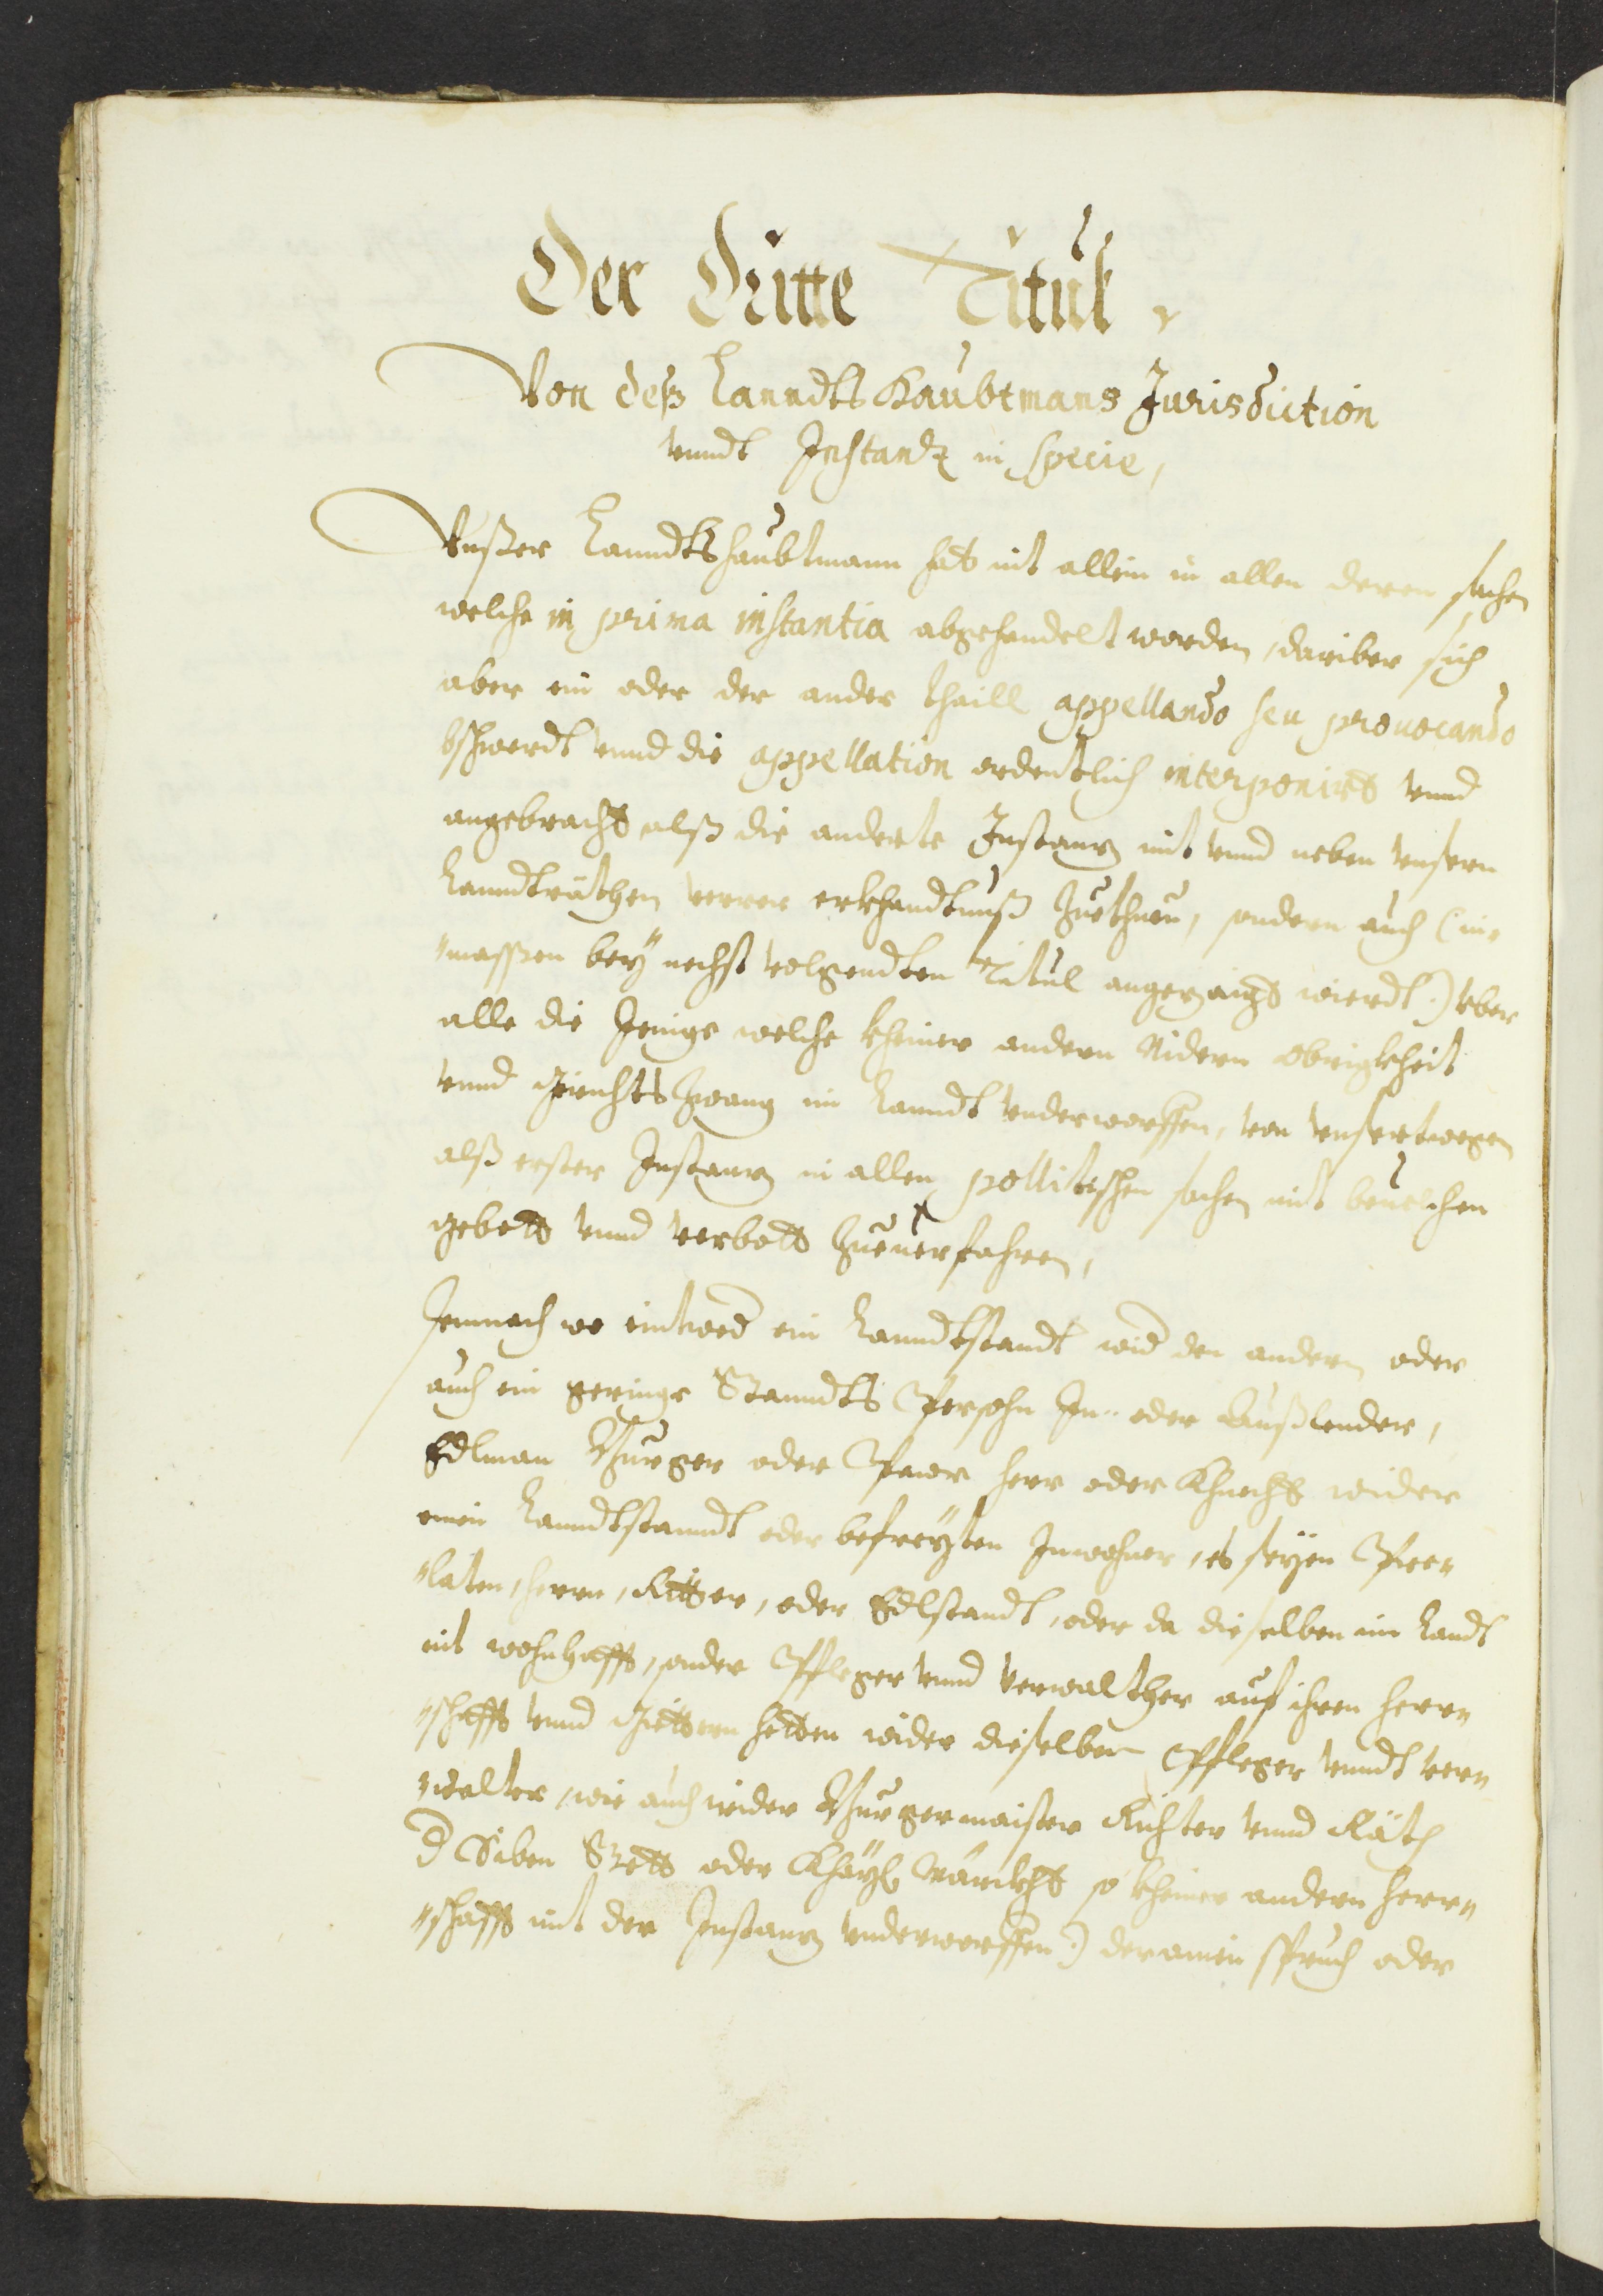 Der Dritte Titul
Von deß Lanndts Haubtmans Jurisdiction
vnndt Instandz in specie,
Vnßer Lanndtshaubtmann hat nit allein in allen denen sachen
welche in prima instantia abgehandelt worden, dariber sich
aber ein oder der ander thaill appellando seu prouocando
bschwerdt vnnd die appellation ordentlich interponirt vnnd
angebracht alß die anderte Instanz mit vnnd neben vnsern
Lanndträthen verrer erkhandtnuß Zuethuen, sondern auch (in„
„massen bey nechst volgendten Titul angezaigt wierdt.) vber
alle die Jenige welche kheiner andern Nidern obrigkheit
vnnd Gerichts Zwang im Lanndt vnderworffen, von vnsertwegen
alß erster Instanz in allen pollitischen sachen mit beuelchen
gebott vnnd verbott Zueuerfahren,
Jemnach wo eintwed ein Lanndtstandt wid den andern oder
auch ein geringe Stanndts Persohn In- oder Außlender,
Edlman Burger oder Pawr herr oder Khnecht wider
einen Lanndtstanndt oder befreyten Inwohner, es seyen Prae„
„laten, herrn, Ritter, oder Edlstandt, oder da dieselben im Landt
nit wohnhafft, sonder Pfleger vnnd Verwalther auf ihren herr„
„schafft vnnd Güettern hetten wider dieselben Pfleger vnndt ver„
„walter, wie auch wider Burgermaister Richter vnnd Räth
d Siben Stett oder Khayß Märckht so kheiner andern herr„
„schafft mit der Instanz vnderworffen.) der ainen spruch oder